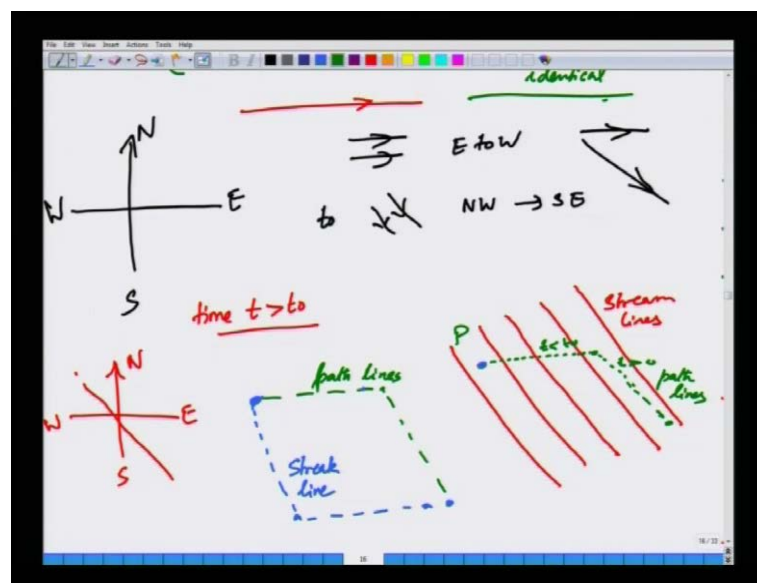 File Edit View Insert Actions Tools Help
B I
identical
N
W E
S
E to W
to NW → SE
time t > to
N
W E
S
path lines
Streak
line
P
Stream
lines
path
lines
16
16 / 33